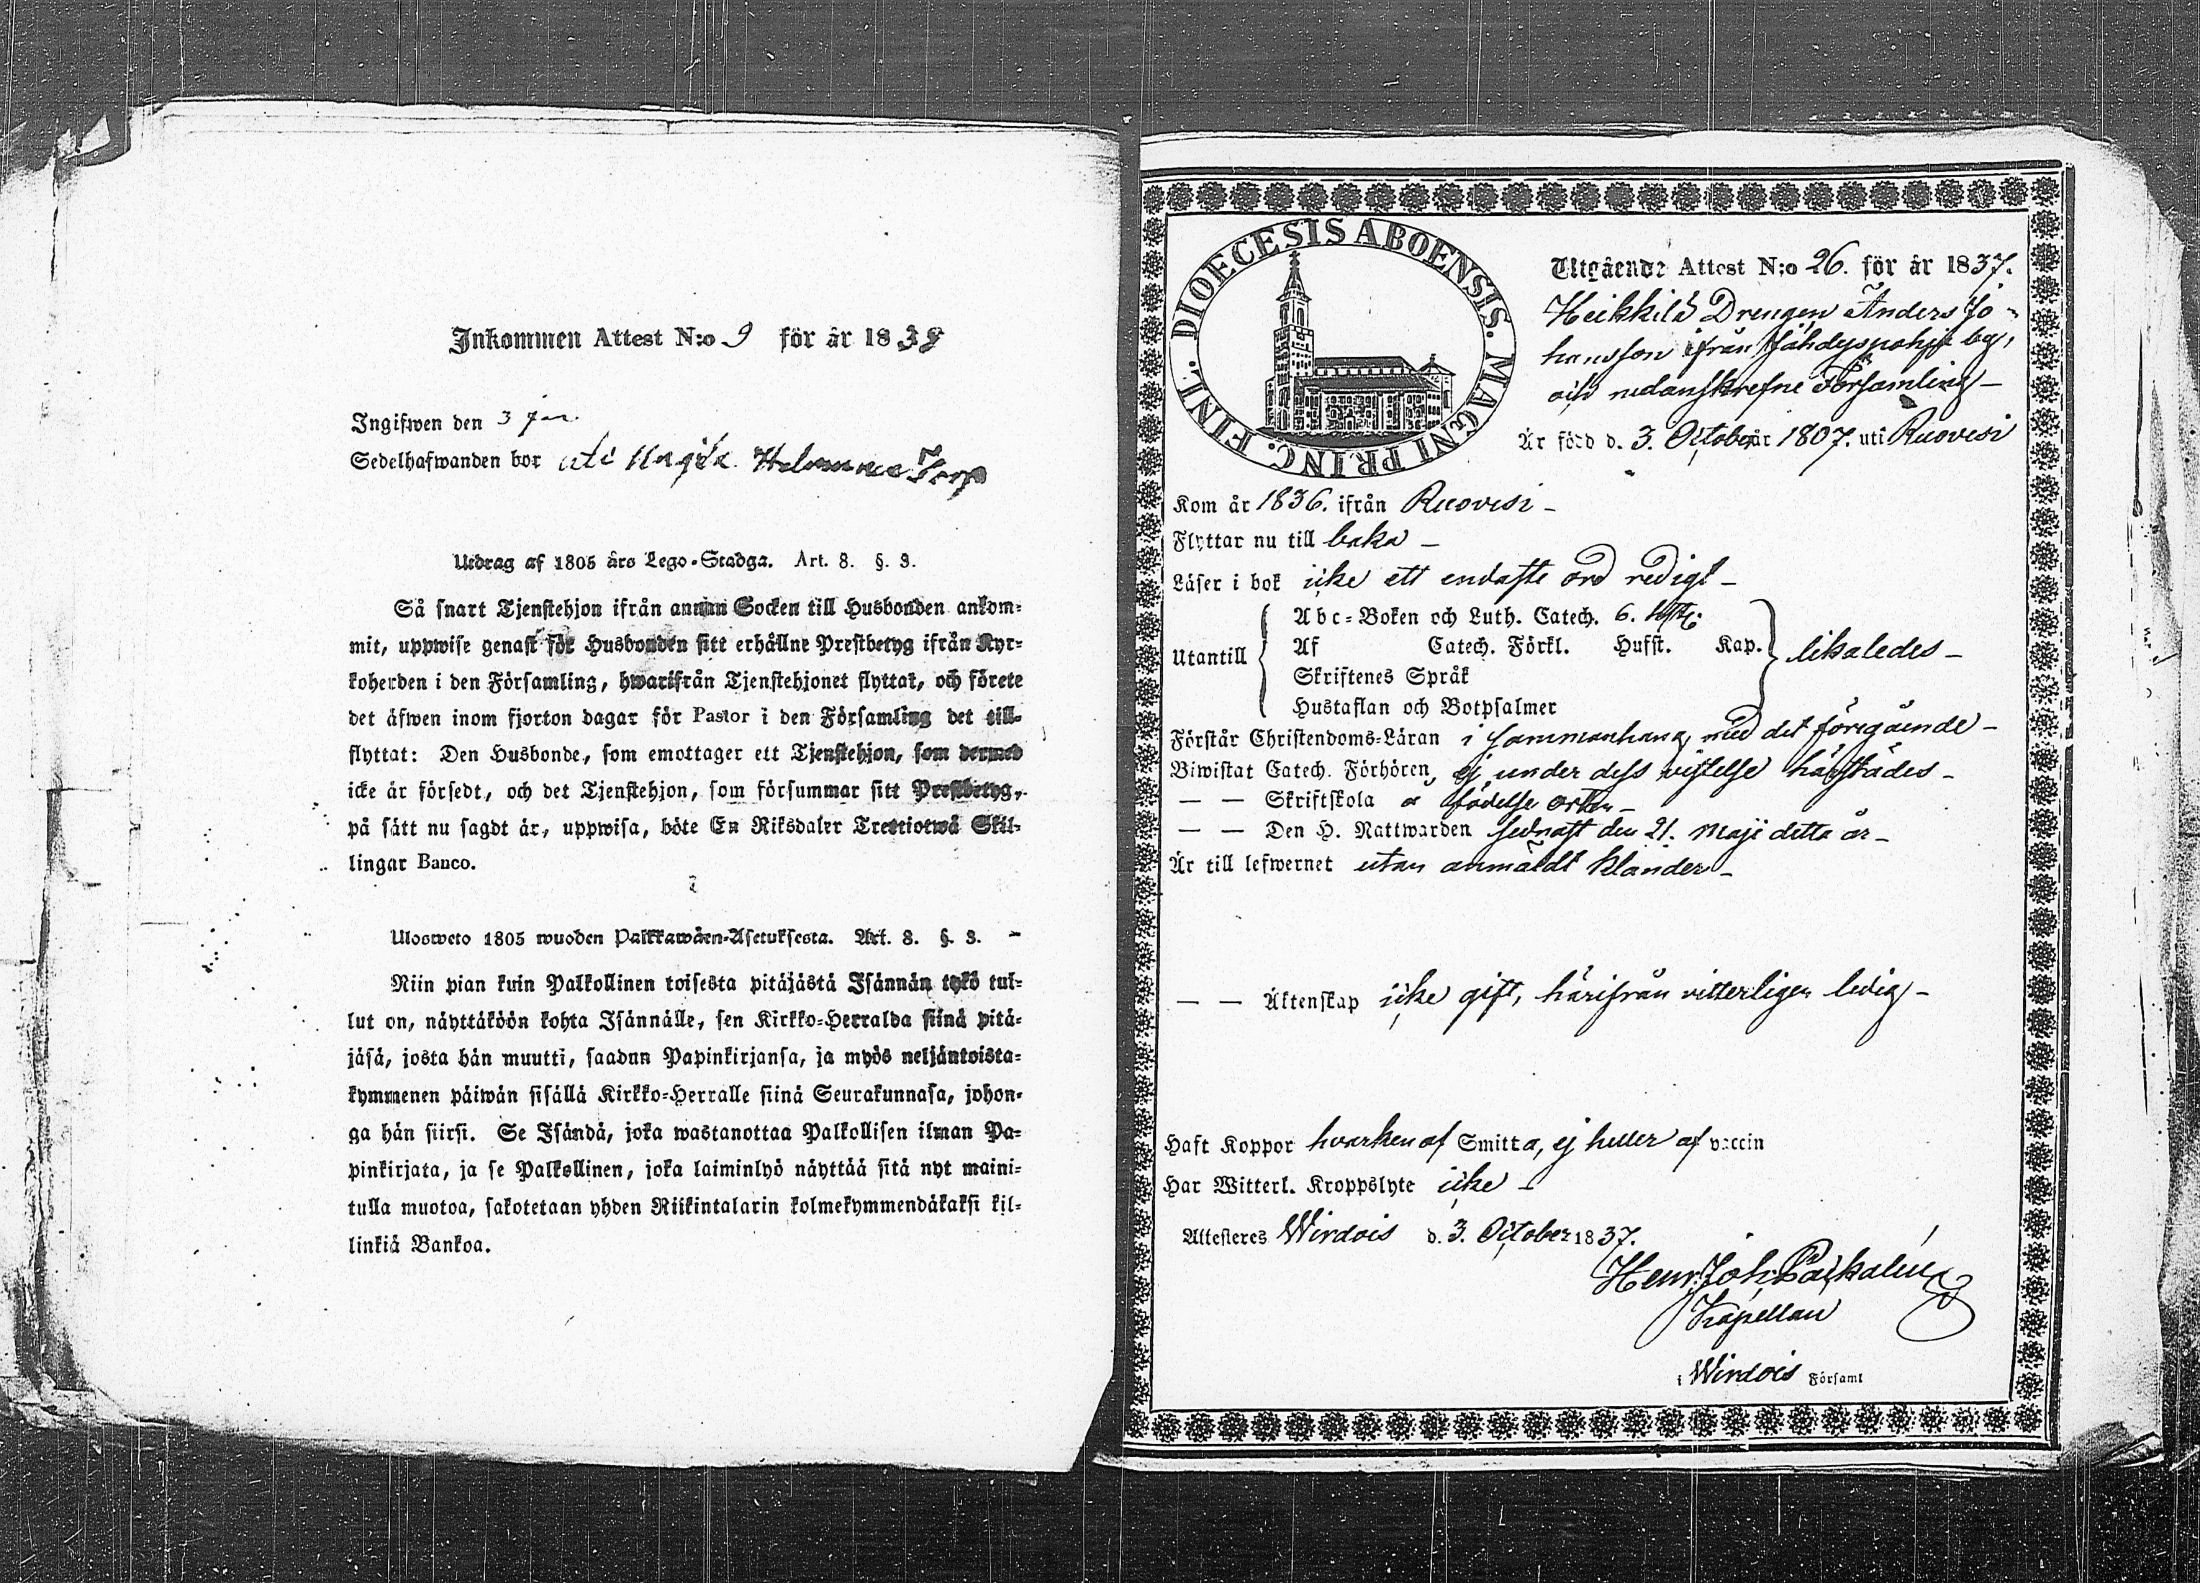 Inkommen Attest N:o 9 för år 1838
Ingifwen den 3 Jan.
Sedelhafwanden bor uti Torp
Utdrag af 1805 års Lego-Stadga. Art. 8. §. 3.
Så snart Tjenstehjon ifrån annan Socken till Husbonden ankom-
mit, uppwise genast för Husbonden sitt erhållne Prestbetyg ifrån Kyr-
koherden i den Församling, hwarifrån Tjenstehjonet flyttat, och förete
det äfwen inom fjorton dagar för Pastor i den Församling det till-
flyttat: Den Husbonde, som emottager ett Tjenstehjon, som dermed
icke är försedt, och det Tjenstehjon, som försummar sitt Prestbetyg,
på sätt nu sagdt är, uppwisa, böte En Riksdaler Trettiotwå Skil-
lingar Banco.
Ulosweto 1805 wuoden Palkkawäen-Asetuksesta. Art. 8. §. 3.
Niin pian kuin Palkollinen toisesta pitäjästä Isännän tykö tul-
lut on, näyttäköön kohta Isännälle, sen Kirkko-Herralda siinä pitä-
jäsä, josta hän muutti, saadun Papinkirjansa, ja myös neljäntoista-
kymmenen päiwän sisällä Kirkko-Herralle siinä Seurakunnasa, johon-
ga hän siirsi. Se Isändä, joka wastanottaa Palkollisen ilman Pa-
pinkirjata, ja se Palkollinen, joka laiminlyö näyttää sitä nyt maini-
tulla muotoa, sakotetaan yhden Riikintalarin kolmekymmendäkaksi kil-
linkiä Bankoa.
DIOECESIS ABOENSIS. MAGNI PRINC. FINL.
Utgående Attest N:o 26. för år 1837.
Heikkilä Drengen Anders Jo-
hansson ifrån Jähdyspohja by,
och nedanskrefne Församling
Är född d. 3. October år 1807. uti Ruovesi
Kom år 1836. ifrån Ruovesi
Flyttar nu till baka
Läser i bok icke ett endaste ord redigt
Abc-Boken och Luth. Catech. 6. hfst.
Utantill Af Catech. Förkl. Hufst. Kap. likaledes
Skriftenes Språk
Hustaflan och Botpsalmer
Förstår Christendoms-Läran i sammanhang med det föregående
Biwistat Catech. Förhören, ej under dess vistelse härstädes
— — Skriftskola å födelse orten
— — Den H. Nattwarden sednast den 21. Maji detta år
Är till lefwernet utan anmäldt klander
— — Äktenskap icke gift, härifrån vitterligen ledig
Haft Koppor hvarken af Smitta, ej heller af vaccin
Har Witterl. Kroppslyte icke
Attesteres Wirdois d. 3. October 1837.
Henr. Joh.
Kapellan
i Wirdois Församl